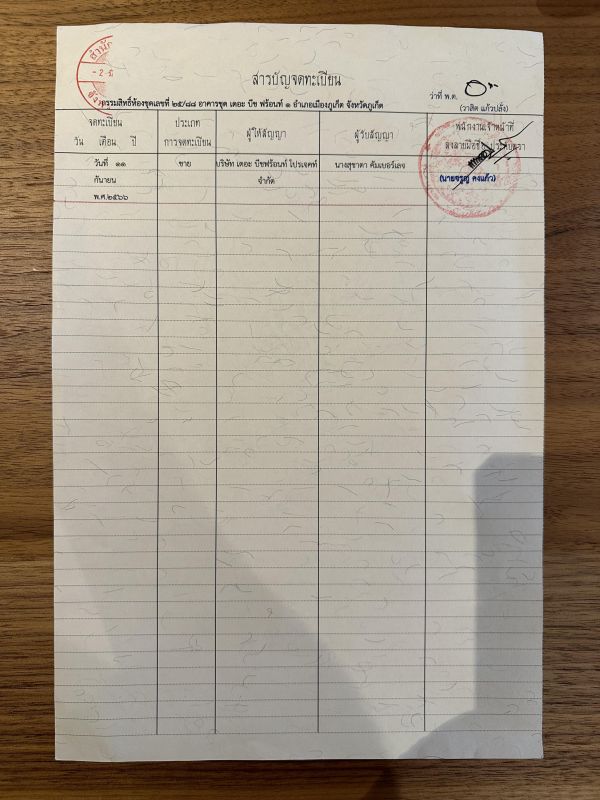 สำนัก
- 2 -
สารบัญจดทะเบียน
กรรมสิทธิ์ห้องชุดเลขที่ ๒๕/๘๘ อาคารชุด เดอะ บีช ฟร้อนท์ ๑ อำเภอเมืองภูเก็ต จังหวัดภูเก็ต
ว่าที่ พ.ต.
(วาสิต แก้วปลั่ง)
จดทะเบียน
วัน เดือน ปี
ประเภท
การจดทะเบียน
ผู้ให้สัญญา
ผู้รับสัญญา
พนักงานเจ้าหน้าที่
ลงลายมือชื่อ ประทับตรา
วันที่ ๑๑
กันยายน
พ.ศ.๒๕๖๖
ขาย
บริษัท เดอะ บีชฟร้อนท์ โปรเจคท์
จำกัด
นางสุชาดา คัมเบอร์เลจ
(นายจรูญ คงแก้ว)